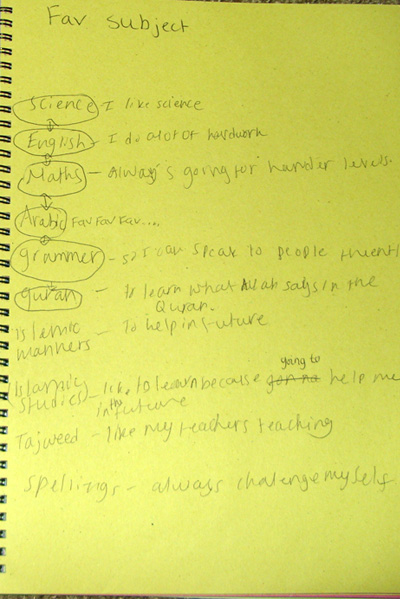 Fav subject
Science I like science
English - I do alot of hardwork
Maths - Always going for harder levels.
Arabic Fav Fav Fav....
grammer - so I can speak to people fluentl
quran - to learn what Allah says in the
Quran.
islamic - To help in future
manners
Islamic going to
studies - like to learn because gonna help me
in the future
Tajweed - like my teachers teaching
spellings - always challenge myself.